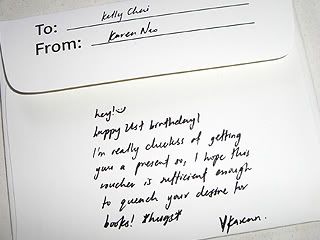 To: Kelly Chui
From: Karen Neo
hey! :)
happy 21st birthday!
I'm really clueless of getting
you a present so, I hope this
voucher is sufficient enough
to quench your desire for
books! *hugs*
Karenn.